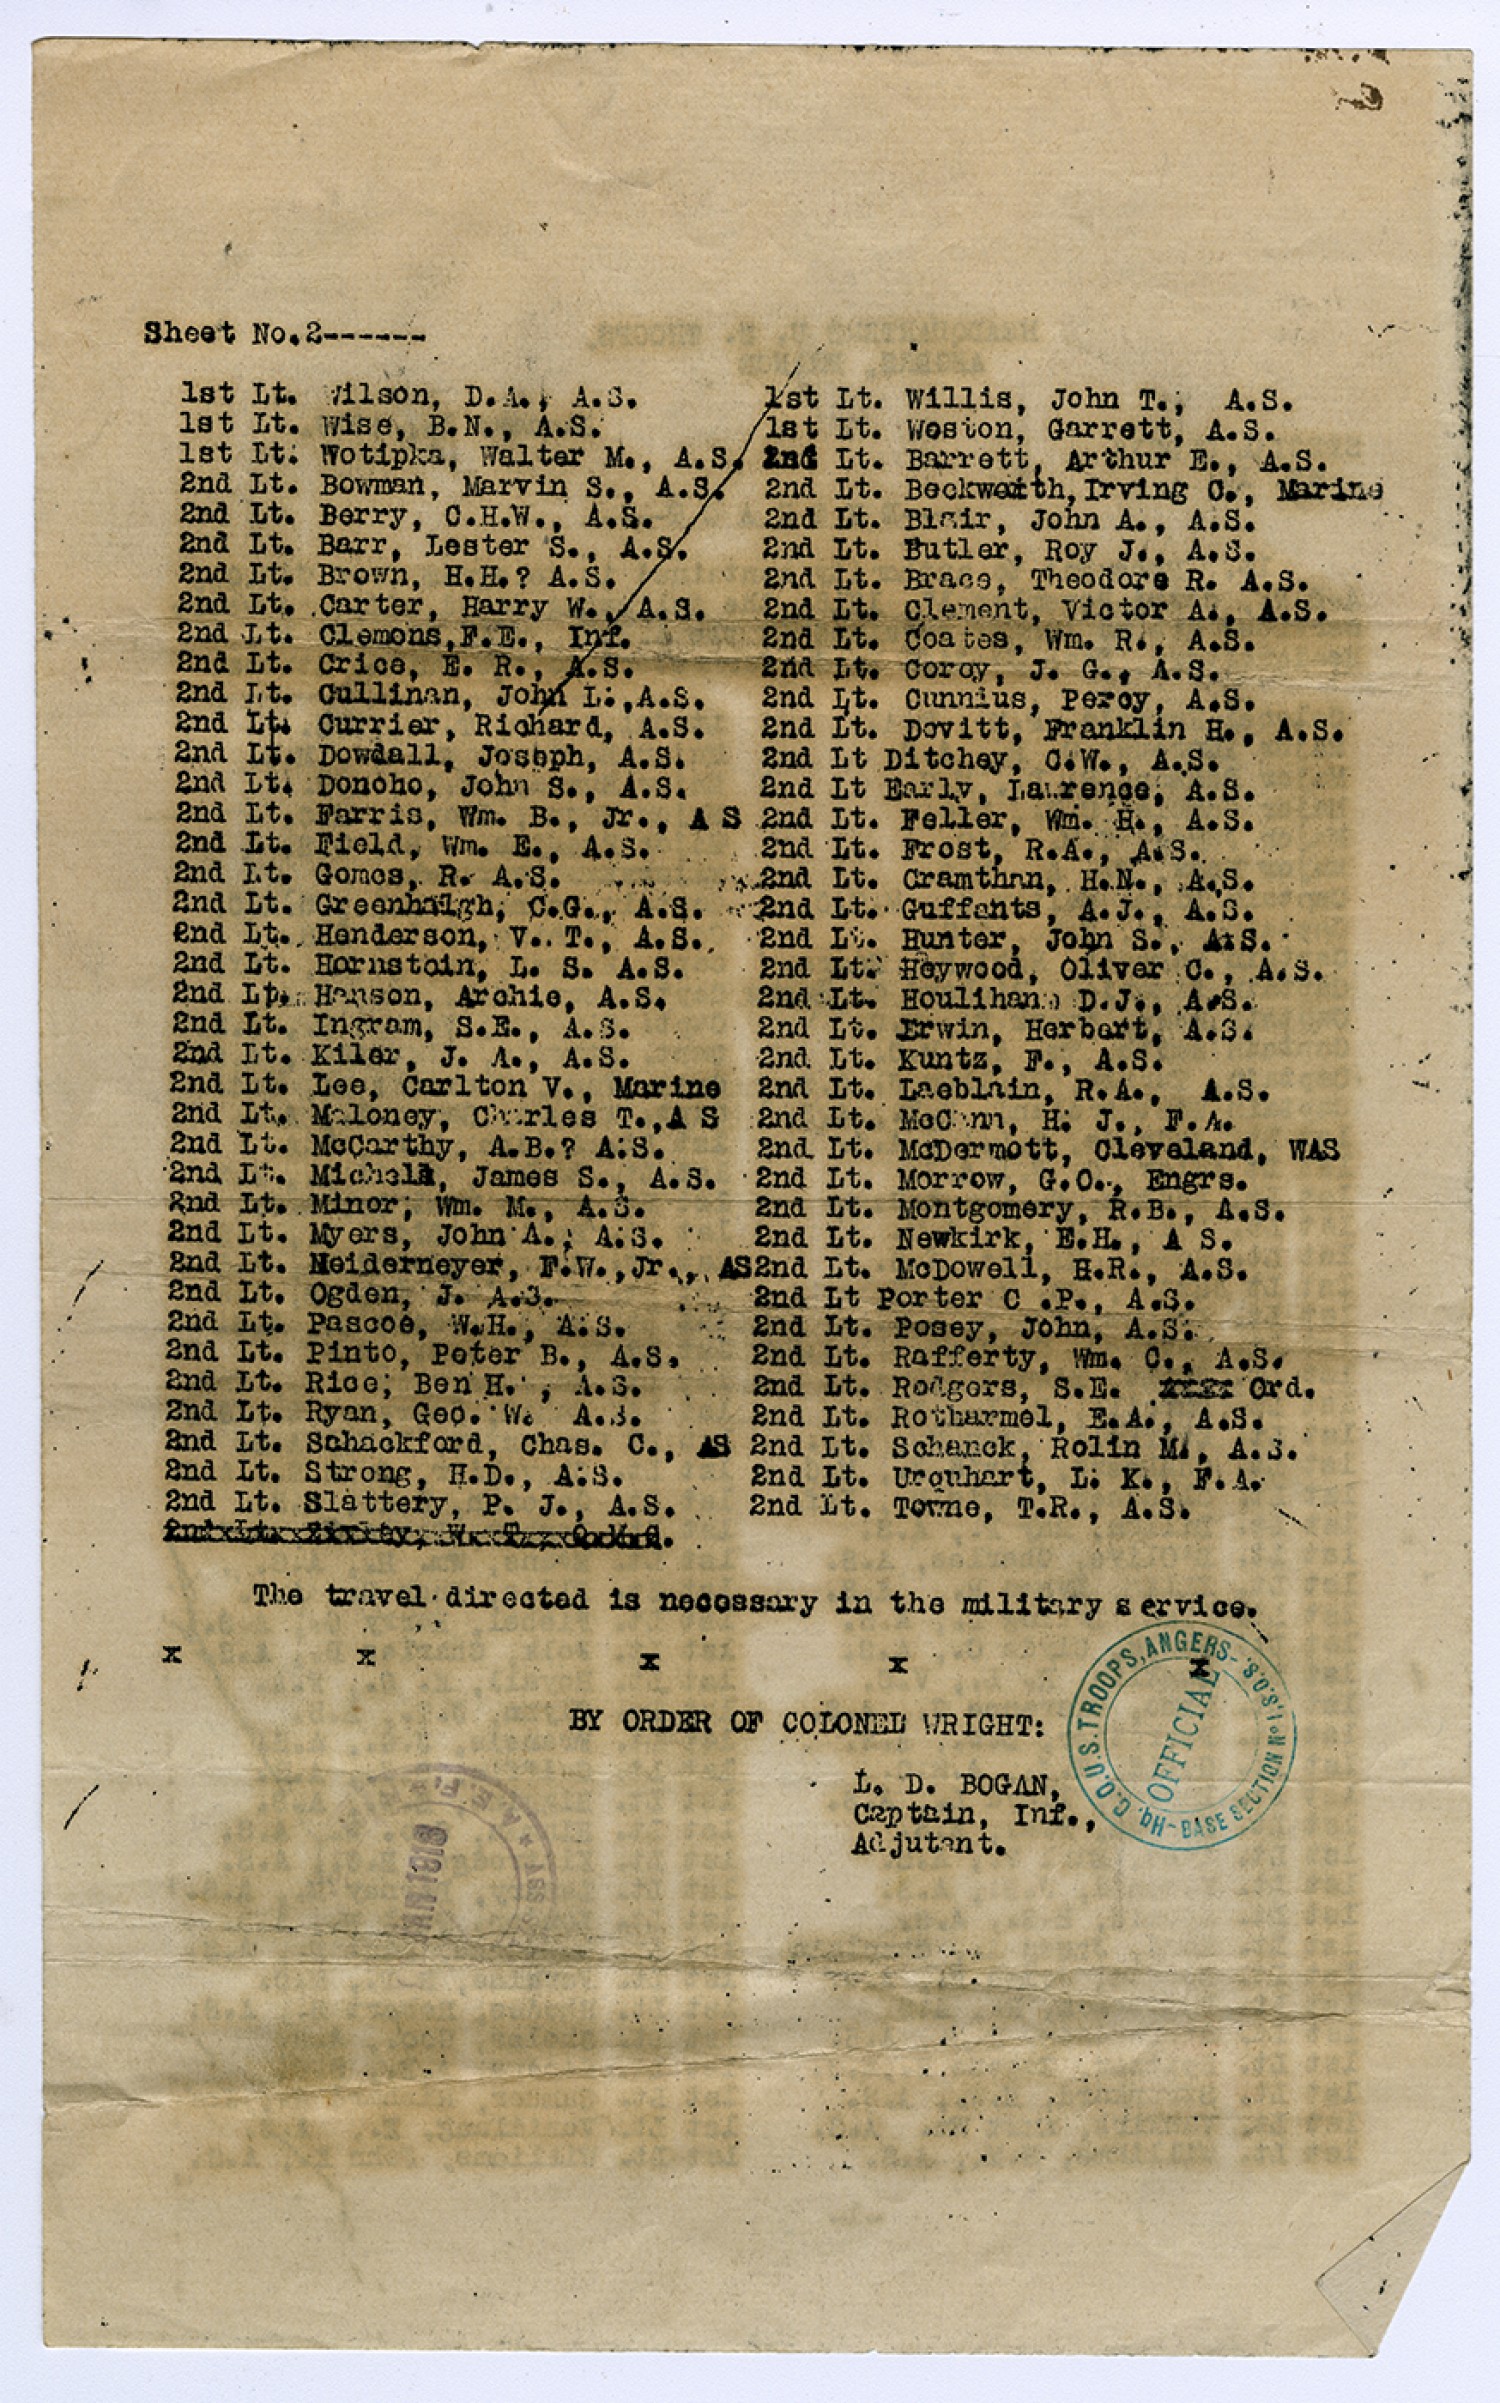 Sheet No.2------
1st Lt. Wilson, D.A., A.S. 1st Lt. Willis, John T., A.S.
1st Lt. Wise, B.N., A.S. 1st Lt. Weston, Garrett, A.S.
1st Lt. Wotipka, Walter M., A.S. 2nd Lt. Barrett, Arthur E., A.S.
2nd Lt. Bowman, Marvin S., A.S. 2nd Lt. Beckworth, Irving C., Marine
2nd Lt. Berry, C.H.W., A.S. 2nd Lt. Blair, John A., A.S.
2nd Lt. Barr, Lester S., A.S. 2nd Lt. Butler, Roy J., A.S.
2nd Lt. Brown, H.H.? A.S. 2nd Lt. Brace, Theodore R. A.S.
2nd Lt. Carter, Harry W., A.S. 2nd Lt. Clement, Victor A., A.S.
2nd Lt. Clemons,F.E., Inf. 2nd Lt. Coates, Wm. R., A.S.
2nd Lt. Crice, E. R., A.S. 2nd Lt. Corey, J. G., A.S.
2nd Lt. Cullinan, John L.,A.S. 2nd Lt. Cunnius, Percy, A.S.
2nd Lt. Currier, Richard, A.S. 2nd Lt. Dovitt, Franklin H., A.S.
2nd Lt. Dowdall, Joseph, A.S. 2nd Lt Ditchey, C.W., A.S.
2nd Lt. Donoho, John S., A.S. 2nd Lt Early, Laurence, A.S.
2nd Lt. Farris, Wm. B., Jr., A S 2nd Lt. Feller, Wm. H., A.S.
2nd Lt. Field, Wm. E., A.S. 2nd Lt. Frost, R.A., A.S.
2nd Lt. Gomes, R. A.S. 2nd Lt. Cramthan, H.N., A.S.
2nd Lt. Greenhalgh, C.G., A.S. 2nd Lt. Guffants, A.J., A.S.
2nd Lt. Henderson, V. T., A.S. 2nd Lt. Hunter, John S., A.S.
2nd Lt. Hornstein, L. S. A.S. 2nd Lt. Heywood, Oliver C., A.S.
2nd Lt. Hanson, Archie, A.S. 2nd Lt. Houlihan D.J., A.S.
2nd Lt. Ingram, S.E., A.S. 2nd Lt. Erwin, Herbert, A.S.
2nd Lt. Kiler, J. A., A.S. 2nd Lt. Kuntz, F., A.S.
2nd Lt. Lee, Carlton V., Marine 2nd Lt. Laeblain, R.A., A.S.
2nd Lt. Maloney, Charles T.,A S 2nd Lt. McCann, H. J., F.A.
2nd Lt. McCarthy, A.B.? A.S. 2nd Lt. McDermott, Cleveland, WAS
2nd Lt. James S., A.S. 2nd Lt. Morrow, G.O., Engrs.
2nd Lt. Minor, Wm. M., A.S. 2nd Lt. Montgomery, R.B., A.S.
2nd Lt. Myers, John A., A.S. 2nd Lt. Newkirk, E.H., A S.
2nd Lt. Neidermeyer, F.W.,Jr., AS 2nd Lt. McDowell, H.R., A.S.
2nd Lt. Ogden, J. A.S. 2nd Lt Porter C .P., A.S.
2nd Lt. Pascoe, W.H., A.S. 2nd Lt. Posey, John, A.S.
2nd Lt. Pinto, Peter B., A.S. 2nd Lt. Rafferty, Wm. C., A.S.
2nd Lt. Rice, Ben H. , A.S. 2nd Lt. Rodgers, S.E. xxxx Ord.
2nd Lt. Ryan, Geo. W. A.S. 2nd Lt. Rotharmel, E.A., A.S.
2nd Lt. Schackford, Chas. C., AS 2nd Lt. Schanck, Rolin M., A.S.
2nd Lt. Strong, H.D., A.S. 2nd Lt. Urquhart, L. K., F.A.
2nd Lt. Slattery, P. J., A.S. 2nd Lt. Towne, T.R., A.S.
The travel directed is necessary in the military service.
x x x x x
BY ORDER OF COLONEL WRIGHT:
L. D. BOGAN,
Captain, Inf.,
Adjutant.
Hq. C.O.U.S. TROOPS, ANGERS- BASE SECTION No 1, S.O.S.
OFFICIAL
A.E.F.
JAN 1918